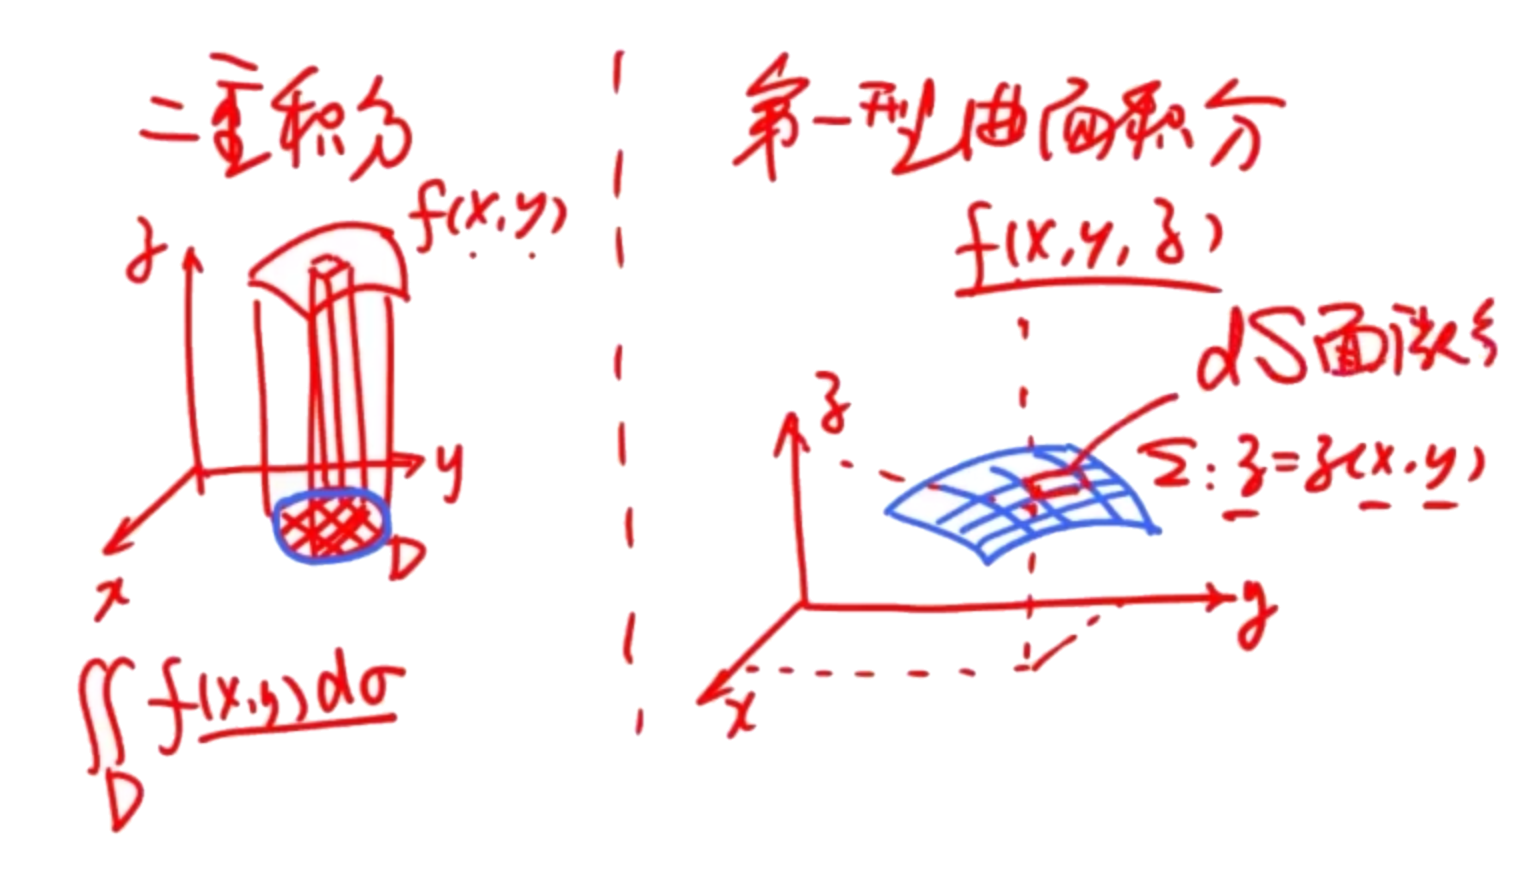 二重积分
f(x,y)
z
y
D
x
∬ f(x,y)dσ
D
第一型曲面积分
f(x,y,z)
dS面微
z
Σ: z=z(x,y)
y
x